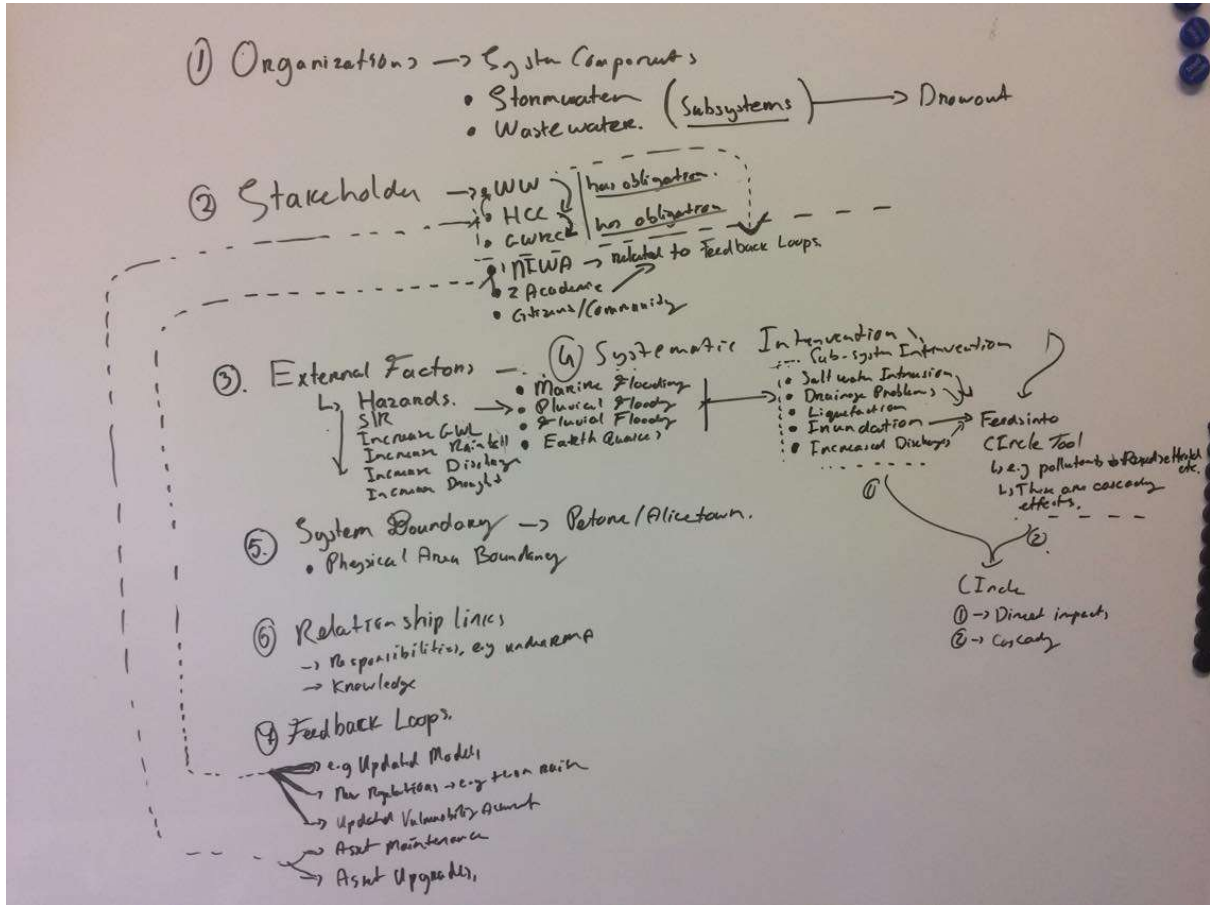 ① Organizations → System Components
• Stormwater (Subsystems) → Drawout
• Wastewater.
② Stakeholder → • WW has obligation.
• HCC has obligation
• GWRC
• NIWA → related to Feedback Loops.
• 2 Academic
• Citizens/Community
③. External Factors
↳ Hazards.
SLR
Increase GWL
Increase Rainfall
Increase Discharge
Increase Drought
④ Systematic Intervention
• Marine Flooding
• Pluvial Floody
• Fluvial Floody
• Earth Quakes
Sub-system Intervention
• Salt water Intrusion
• Drainage Problems
• Liquefaction
• Inundation
• Increased Discharges
Feeds into
CIrcle Tool
↳ e.g pollutants → etc.
↳ These are cascady
effects.
① ②
CIrcle
① → Direct impacts
② → Cascady
⑤. System Boundary → Petone/Alicetown.
• Physical Area Boundary
⑥ Relationship links
→ Responsibilities, e.g under RMA
→ Knowledge
⑦ Feedback Loops.
→ e.g Updated Models
→ New Regulations → e.g
→ Updated Vulnerability
→ Asset Maintenance
→ Asset Upgrades,